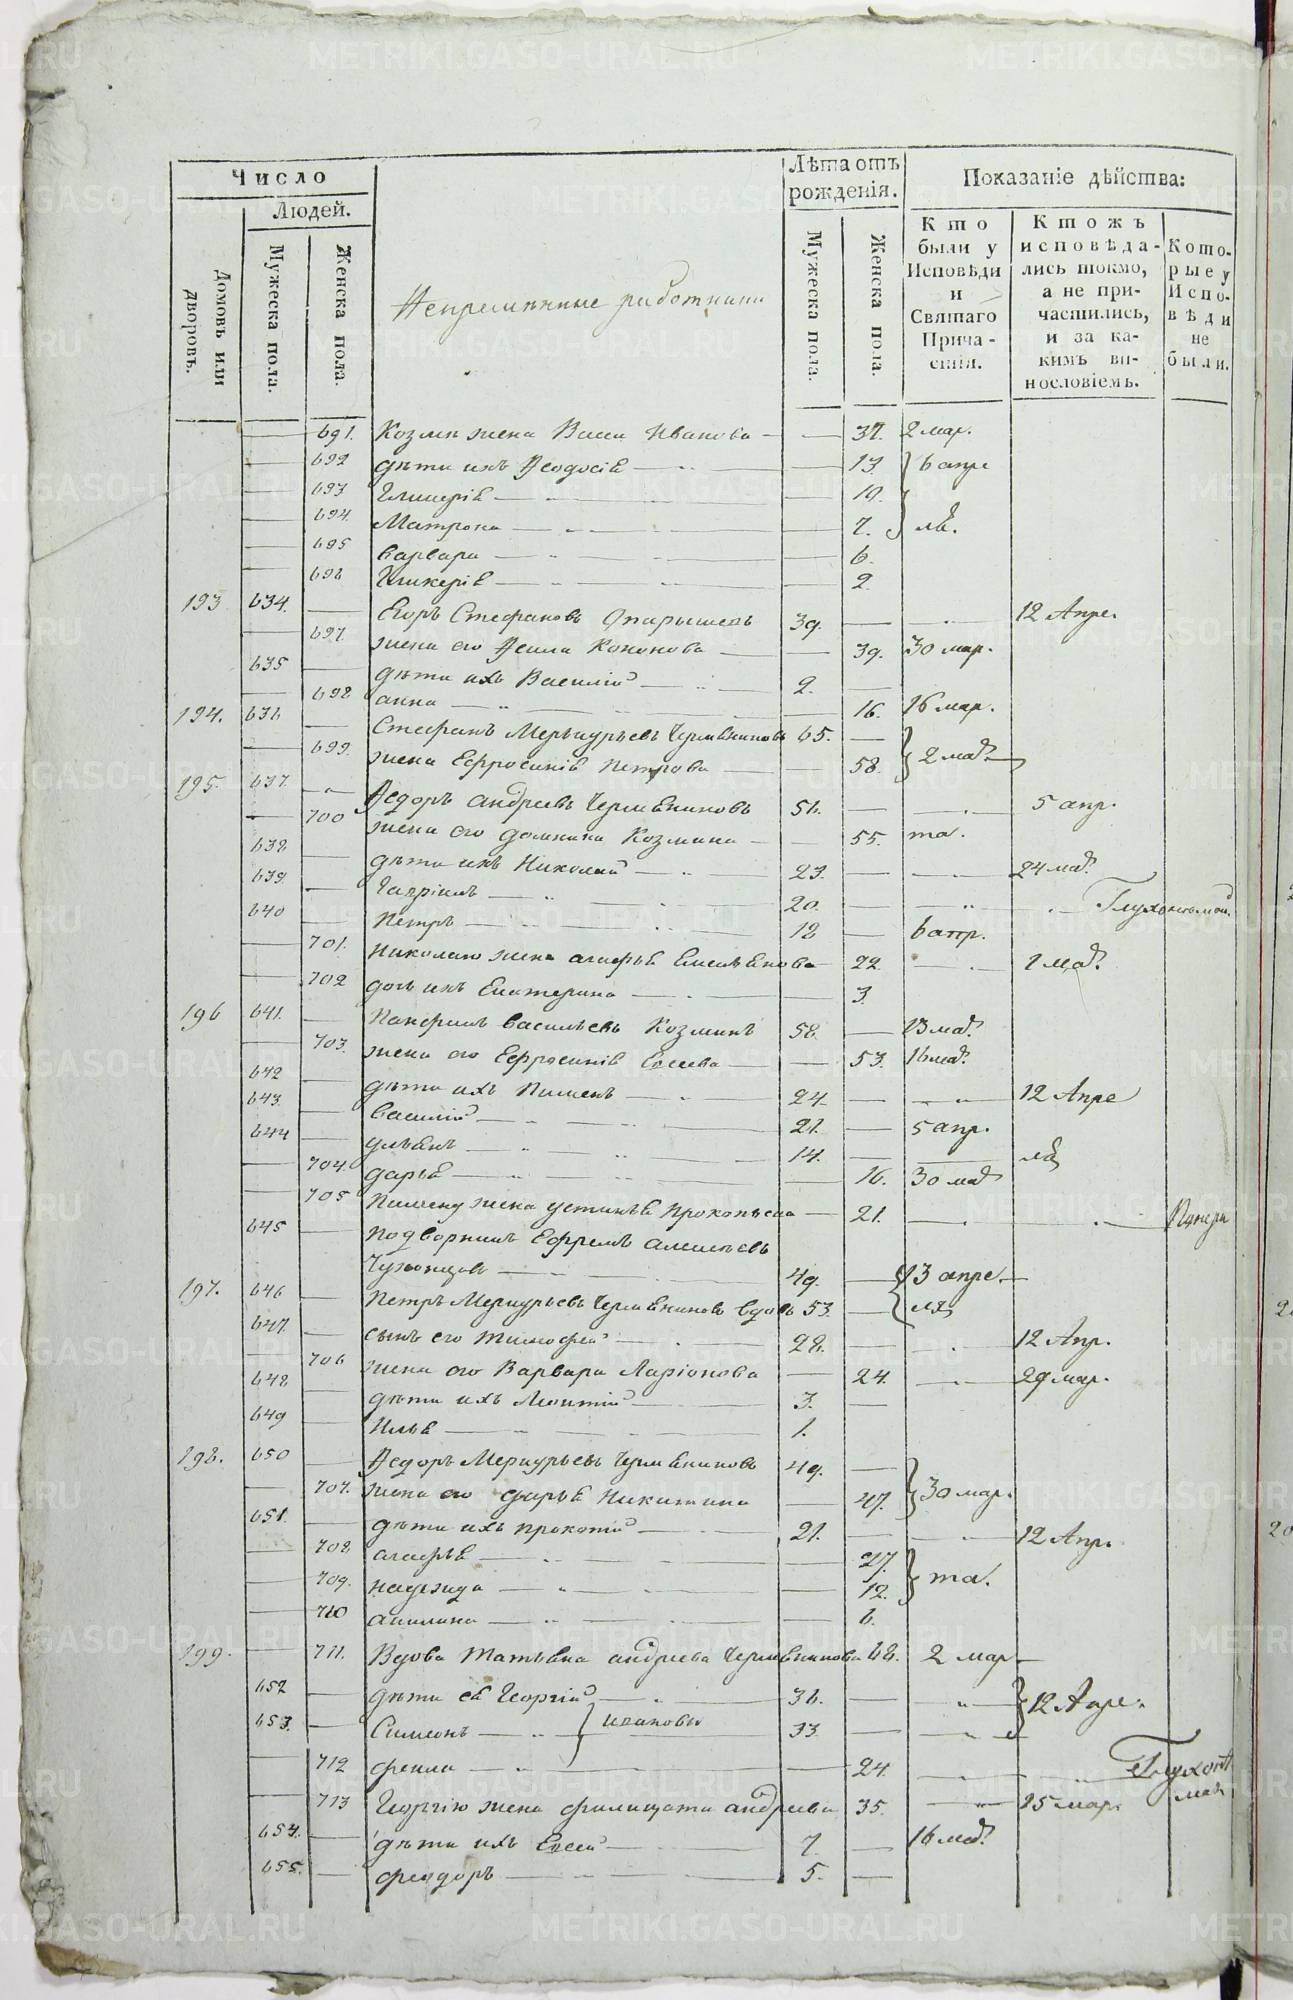 Число
Людей.
Домовъ или дворовъ.
Мужеска пола.
Женска пола.
Непременные работники
Лѣта отъ рожденія.
Мужеска пола.
Женска пола.
Показаніе дѣйства:
Кто были у Исповѣди и Святаго Причастія.
Ктожъ исповѣдались токмо, а не причастились, и за какимъ винословіемъ.
Которые у Исповѣди не были.
691. Козмы жена Васса Иванова 37. 2 мар.
692 дѣти ихъ Ѳеодосія 13. 6 апре
693 Гликерія 10.
694. Матрона 7.
695 варвара 6.
696 Гликерія 2.
193 634. Егоръ Стефановъ 39. 12 Апре.
697. жена его Кононова 39. 30 мар.
635 дѣти ихъ Василій 2.
698 анна 16. 16 мар.
194. 636 Стефанъ Меркурьевъ 65.
699. жена Ефросинія Петрова 58. 2 мар.
195. 637. Ѳедоръ андреевъ 56. 5 апр.
700 жена его домника Козмина 55. та.
638 дѣти ихъ Николай 23. 24 мар.
639. Гавріилъ 20. Глухонемой.
640 Петръ 12 6 апр.
701. Николаю жена агафья Емельянова 22. 2 мар.
702 дочь ихъ Екатерина 3.
196 641. Панфилъ васильевъ Козминъ 58. 13 мар.
703. жена его Ефросинія Евсеева 53. 16 мар.
642 дѣти ихъ Пименъ 24. 12 Апре
643. василій 21. 5 апр.
644 ульянъ 14.
704. дарья 16. 30 мар
705 Пимену жена устинья Прокопьева 21.
645 Подворникъ Ефремъ алексѣевъ
49. 13 апре.
197. 646 Петръ Меркурьевъ вдовъ 53.
647. сынъ его тимофей 28. 12 Апр.
706 жена его Варвара Ларіонова 24. 29 мар.
648 дѣти ихъ Леонтій 3.
649 Илья 1.
198. 650 Ѳедоръ Меркурьевъ 49.
707. жена его дарья Никитина 47. 30 мар.
651. дѣти ихъ прокопій 21. 12 Апр.
708 агафья 27. та.
709. надежда 12.
710 акилина 6.
199. 711. Вдова татьяна андреева 68. 2 мар
652 дѣти ея Георгій 36. 12 Апре.
653. Симеонъ Ивановы 33
712 фекла 24.
713 Георгію жена филицата андреева 35. 25 мар.
654. дѣти ихъ Евсей 7. 16 мар.
655. феодоръ 5.
METRIKI.GASO-URAL.RU